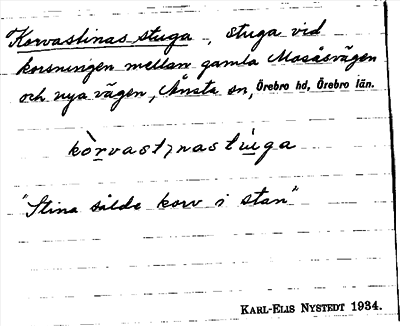 Korvastinas stuga, stuga vid
korsningen mellan gamla Mosåsvägen
och nya vägen, Ånsta sn, Örebro hd, Örebro län.
kòrvastinastùga
"Stina sålde korv i stan"
KARL-ELIS NYSTEDT 1934.